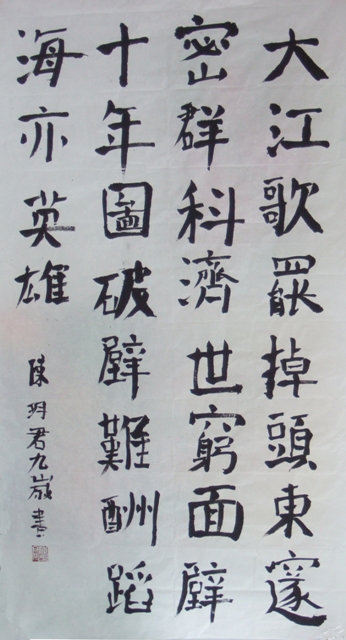 大江歌罷掉頭東邃
密群科濟世窮面壁
十年圖破壁難酬蹈
海亦英雄
陳君九歲書